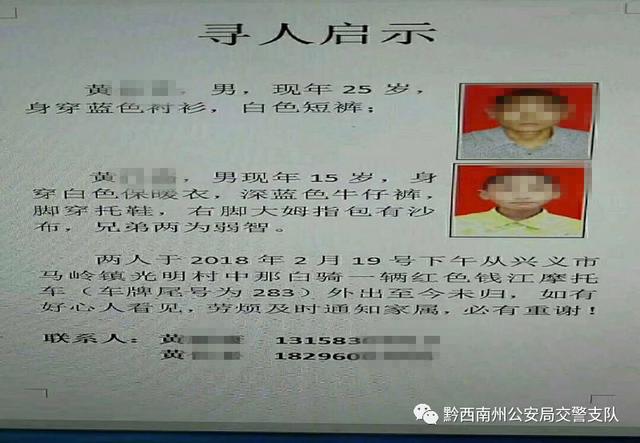 寻人启示
黄 ，男，现年 25 岁，
身穿蓝色衬衫，白色短裤；
黄 ，男现年 15 岁，身
穿白色保暖衣，深蓝色牛仔裤，
脚穿托鞋，右脚大姆指包有沙
布，兄弟两为弱智。
两人于 2018 年 2 月 19 号下午从兴义市
马岭镇光明村中那白骑一辆红色钱江摩托
车（车牌尾号为 283）外出至今未归，如有
好心人看见，劳烦及时通知家属，必有重谢！
联系人：黄 131583
黄 18296
黔西南州公安局交警支队